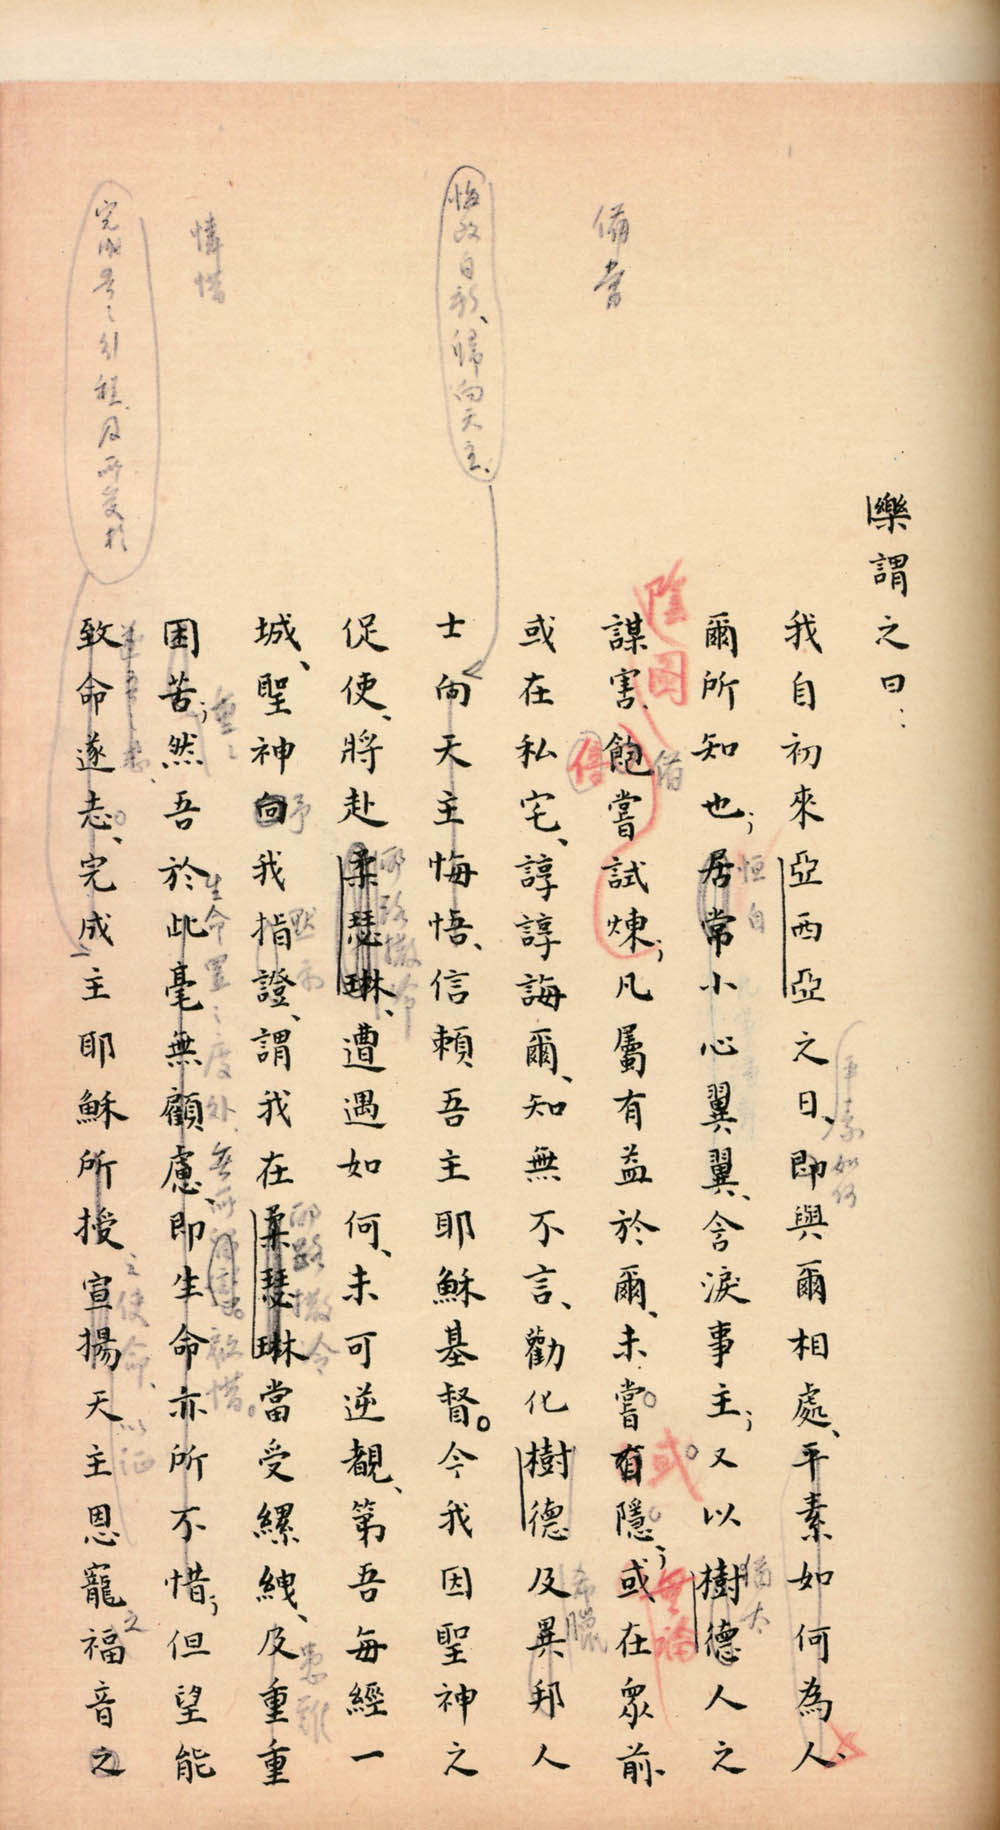 樂謂之曰：
我自初來亞西亞之日、即與爾相處、平素如何為人、
爾所知也；居常小心翼翼、含淚事主；又以樹德人之
謀害、飽嘗試煉；凡屬有益於爾、未嘗有隱；或在眾前、
或在私宅、諄諄誨爾、知無不言、勸化樹德及異邦人
士向天主悔悟、信賴吾主耶穌基督。今我因聖神之
促使、將赴柔瑟琳、遭遇如何、未可逆覩、第吾每經一
城、聖神向我指證、謂我在柔瑟琳當受縲絏、及重重
困苦；然吾於此毫無顧慮、即生命亦所不惜；但望能
致命遂志、完成主耶穌所授宣揚天主恩寵福音之
平素如何
恒自
猶太
陰圖
備
或
無論
備嘗
停
希臘
悔改自新、歸向天主、
耶路撒冷
予
默示
耶路撒冷
患難
憐惜
重重
生命置之度外、
之使命、以証
之